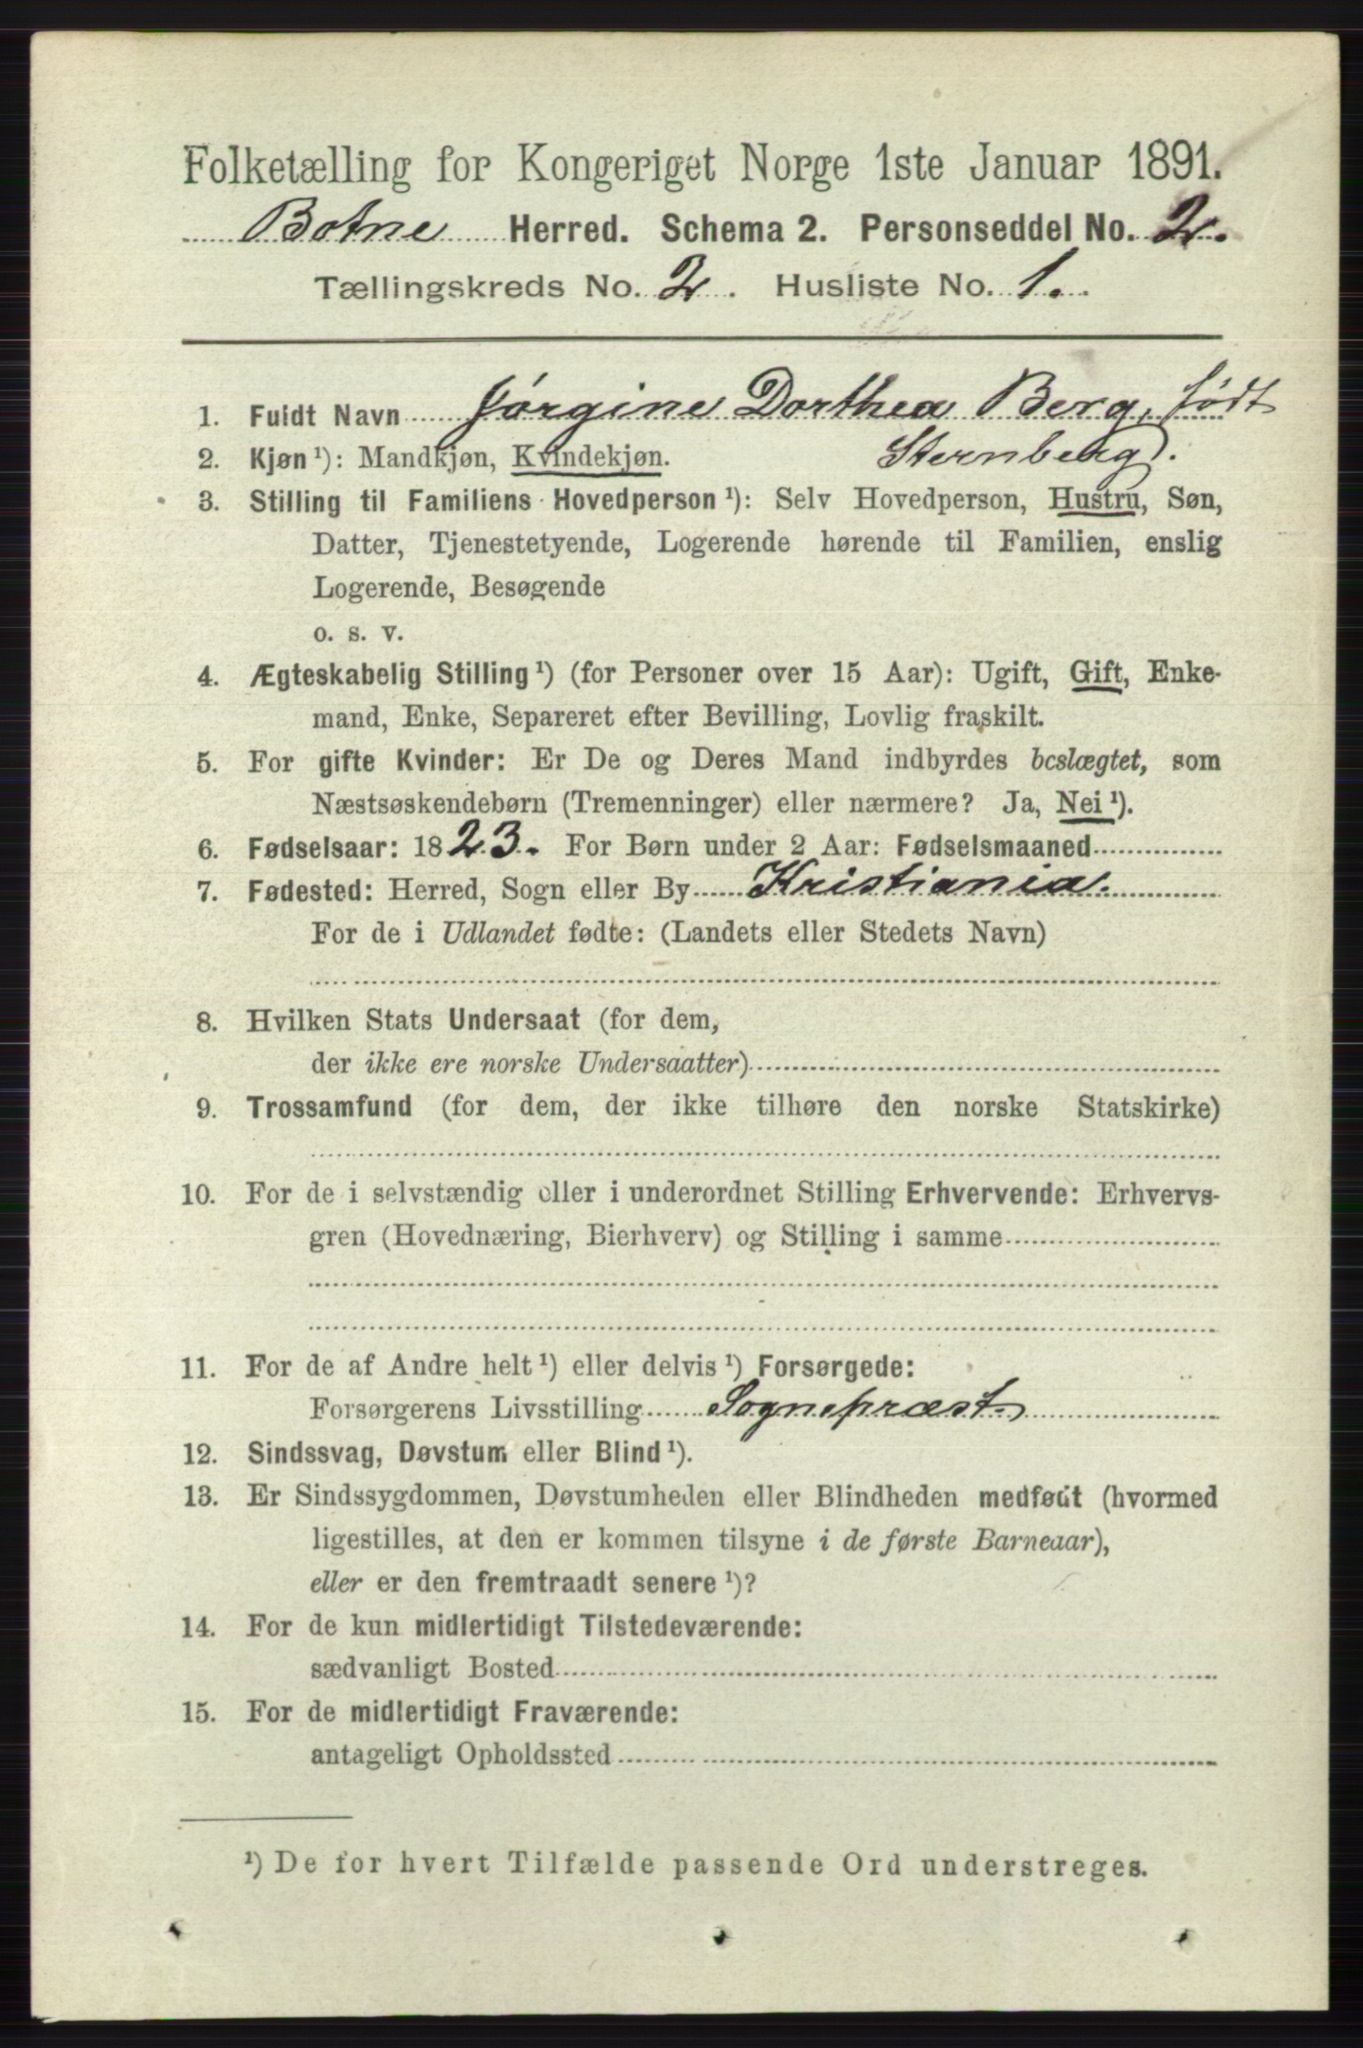 Folketælling for Kongeriget Norge 1ste Januar 1891.
Botne Herred. Schema 2. Personseddel No. 2.
Tællingskreds No. 2. Husliste No. 1.
1. Fuldt Navn Jørgine Dorthea Berg, født
Sternberg.
2. Kjøn¹): Mandkjøn, Kvindekjøn.
3. Stilling til Familiens Hovedperson¹): Selv Hovedperson, Hustru, Søn,
Datter, Tjenestetyende, Logerende hørende til Familien, enslig
Logerende, Besøgende
o. s. v.
4. Ægteskabelig Stilling¹) (for Personer over 15 Aar): Ugift, Gift, Enke-
mand, Enke, Separeret efter Bevilling, Lovlig fraskilt.
5. For gifte Kvinder: Er De og Deres Mand indbyrdes beslægtet, som
Næstsøskendebørn (Tremenninger) eller nærmere? Ja, Nei¹).
6. Fødselsaar: 1823. For Børn under 2 Aar: Fødselsmaaned
7. Fødested: Herred, Sogn eller By Kristiania.
For de i Udlandet fødte: (Landets eller Stedets Navn)
8. Hvilken Stats Undersaat (for dem,
der ikke ere norske Undersaatter)
9. Trossamfund (for dem, der ikke tilhøre den norske Statskirke)
10. For de i selvstændig eller i underordnet Stilling Erhvervende: Erhvervs-
gren (Hovednæring, Bierhverv) og Stilling i samme
11. For de af Andre helt¹) eller delvis¹) Forsørgede:
Forsørgerens Livsstilling Sognepræst
12. Sindssvag, Døvstum eller Blind¹).
13. Er Sindssygdommen, Døvstumheden eller Blindheden medfødt (hvormed
ligestilles, at den er kommen tilsyne i de første Barneaar),
eller er den fremtraadt senere¹)?
14. For de kun midlertidigt Tilstedeværende:
sædvanligt Bosted
15. For de midlertidigt Fraværende:
antageligt Opholdssted
¹) De for hvert Tilfælde passende Ord understreges.